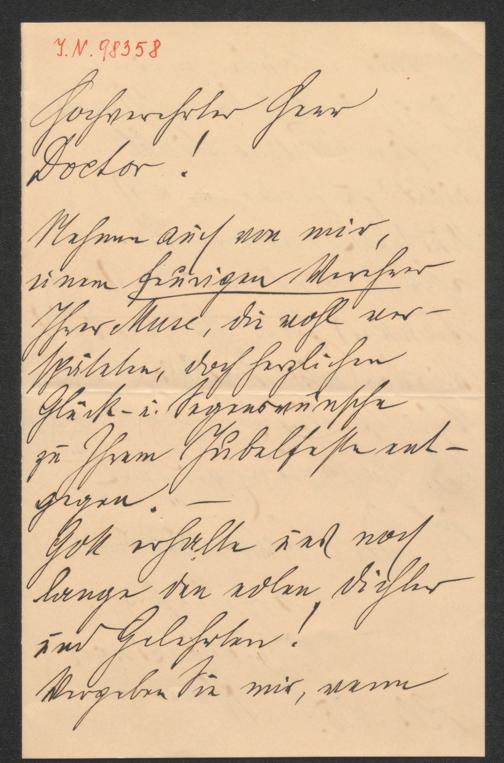 J.N. 98358
Hochverehrter Herr
Doctor!
Nehmen auch von mir,
einem feurigen Verehrer
Ihrer Muse, die wohl ver-
späteten, doch herzlichen
Glück- u. Segenswünsche
zu Ihrem Jubelfeste ent-
gegen. —
Gott erhalte uns noch
lange den edlen Dichter
und Gelehrten!
Vergeben Sie mir, wenn